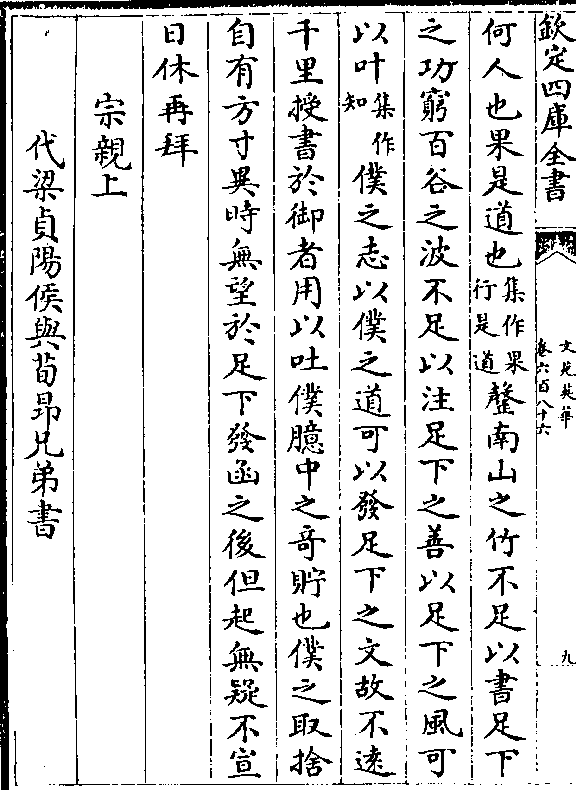 欽定四庫全書
文苑英華
卷六百八十六
九
何人也果是道也集作果行是道罄南山之竹不足以書足下
之功窮百谷之波不足以注足下之善以足下之風可
以叶集作知僕之志以僕之道可以發足下之文故不遠
千里授書於御者用以吐僕臆中之奇貯也僕之取捨
自有方寸異時無望於足下發函之後但起無疑不宣
日休再拜
宗親上
代梁貞陽侯與荀昂兄弟書